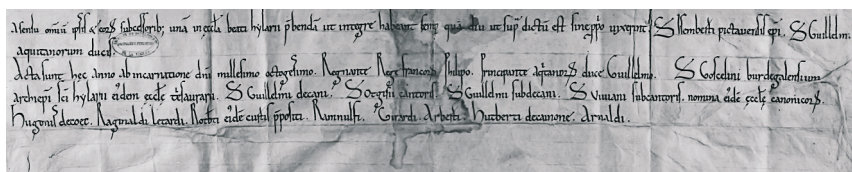 Assensu omniū ipsis & eorȝ successorib; unā in ęcclą beati hylarii pbendā ut integre habeant semp quā diu ut sup dictū est sine ppo uixerint. S Isemberti pictauensis epi. S Guillelmi
aquitanorum ducis.
Acta sunt hec anno ab incarnatione dni millesimo octogesimo. Regnante Rege francorȝ Philipo. Principante aqtanorȝ duce Guillelmo. S Goscelini burdegalensium
archiepi sci hylarii eidem eccle tesaurarii. S Guillelmi decani. S Otgisii cantoris. S Guillelmi subdecani. S Viuiani subcantoris. nomina eidē ęcclę canonicorȝ.
Hugonis de coec. Raginaldi Letardi. Rotberti eidē curtis ppositi. Rannulfi. Girardi. Arberti. Hucberti decamone. Arnaldi.